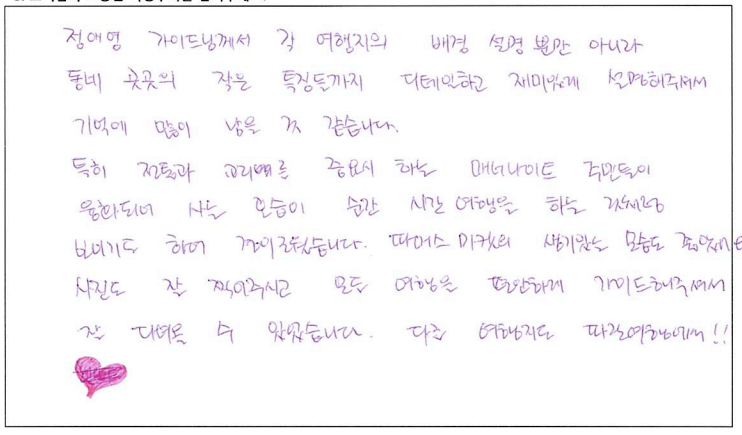 정애영 가이드님께서 각 여행지의 배경 설명 뿐만 아니라
동네 곳곳의 작은 특징들까지 디테일하고 재미있게 설명해주셔서
기억에 많이 남을 것 같습니다.
특히 전통과 교리를 중요시 하는 메너나이트 주민들이
융화되어 사는 모습이 순간 시간 여행을 하는 것처럼
보이기도 하여 경이로웠습니다. 파머스 마켓의 생기있는 모습도 좋았네요
사진도 잘 찍어주시고 모든 여행을 편안하게 가이드해주셔서
잘 다녀올 수 있었습니다. 다음 여행지도 파란여행에서!!